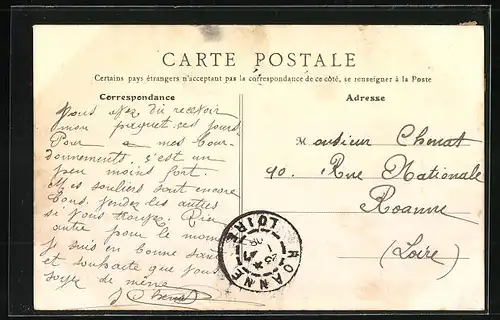 CARTE POSTALE
Certains pays étrangers n'acceptant pas la correspondance de ce côté, se renseigner à la Poste
Correspondance
Vous avez dû recevoir
mon paquet ces jours.
Pour mes bour-
donnements, c'est un
peu moins fort.
Mes souliers sont encore
bons. les autres
si vous Rien
autre pour le moment
Je suis en bonne santé
et souhaite que vous
soyez de même
Adresse
Monsieur Chenat
90. Rue Nationale
Roanne
(Loire)
ROANNE
LOIRE